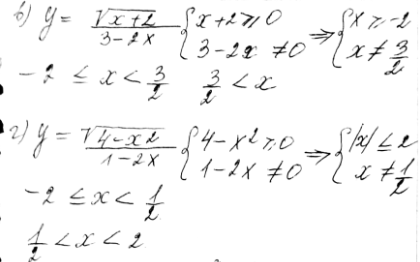 в) y = √(x+2) / (3-2x) { x+2 ≥ 0 ; 3-2x ≠ 0 ⇒ { x ≥ -2 ; x ≠ 3/2
-2 ≤ x < 3/2   3/2 < x
г) y = √(4-x²) / (1-2x) { 4-x² ≥ 0 ; 1-2x ≠ 0 ⇒ { |x| ≤ 2 ; x ≠ 1/2
-2 ≤ x < 1/2
1/2 < x < 2